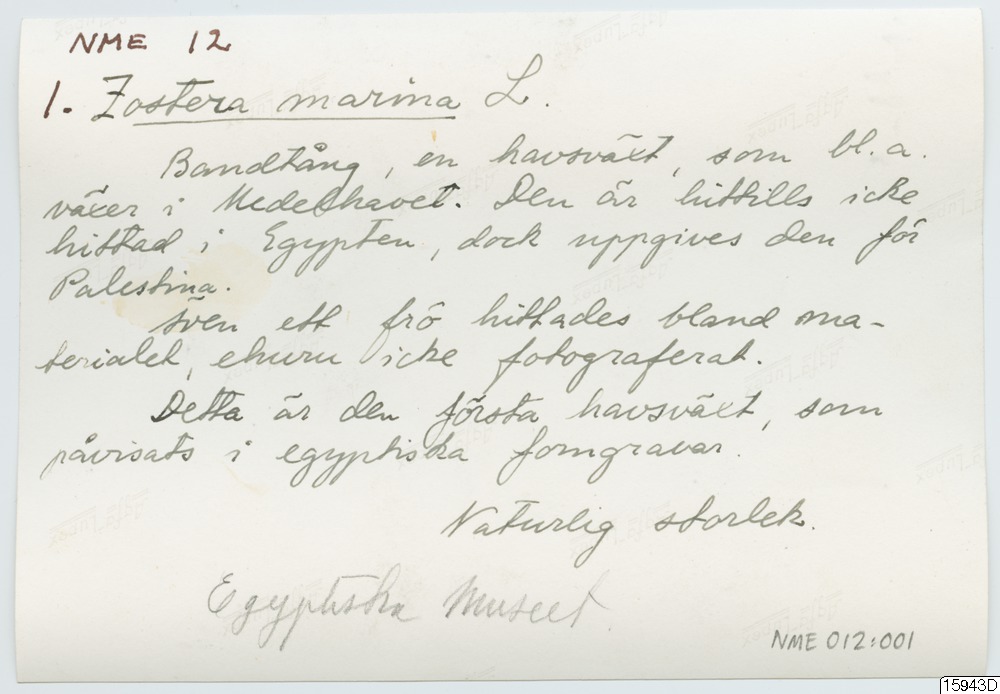 NME 12
1. Zostera marina L.
Bandtång, en havsväxt, som bl.a.
växer i Medelhavet. Den är hittills icke
hittad i Egypten, dock uppgives den för
Palestina.
Även ett frö hittades bland ma-
terialet, ehuru icke fotograferat.
Detta är den första havsväxt, som
påvisats i egyptiska forngravar.
Naturlig storlek.
Egyptiska Museet
NME 012:001
15943D